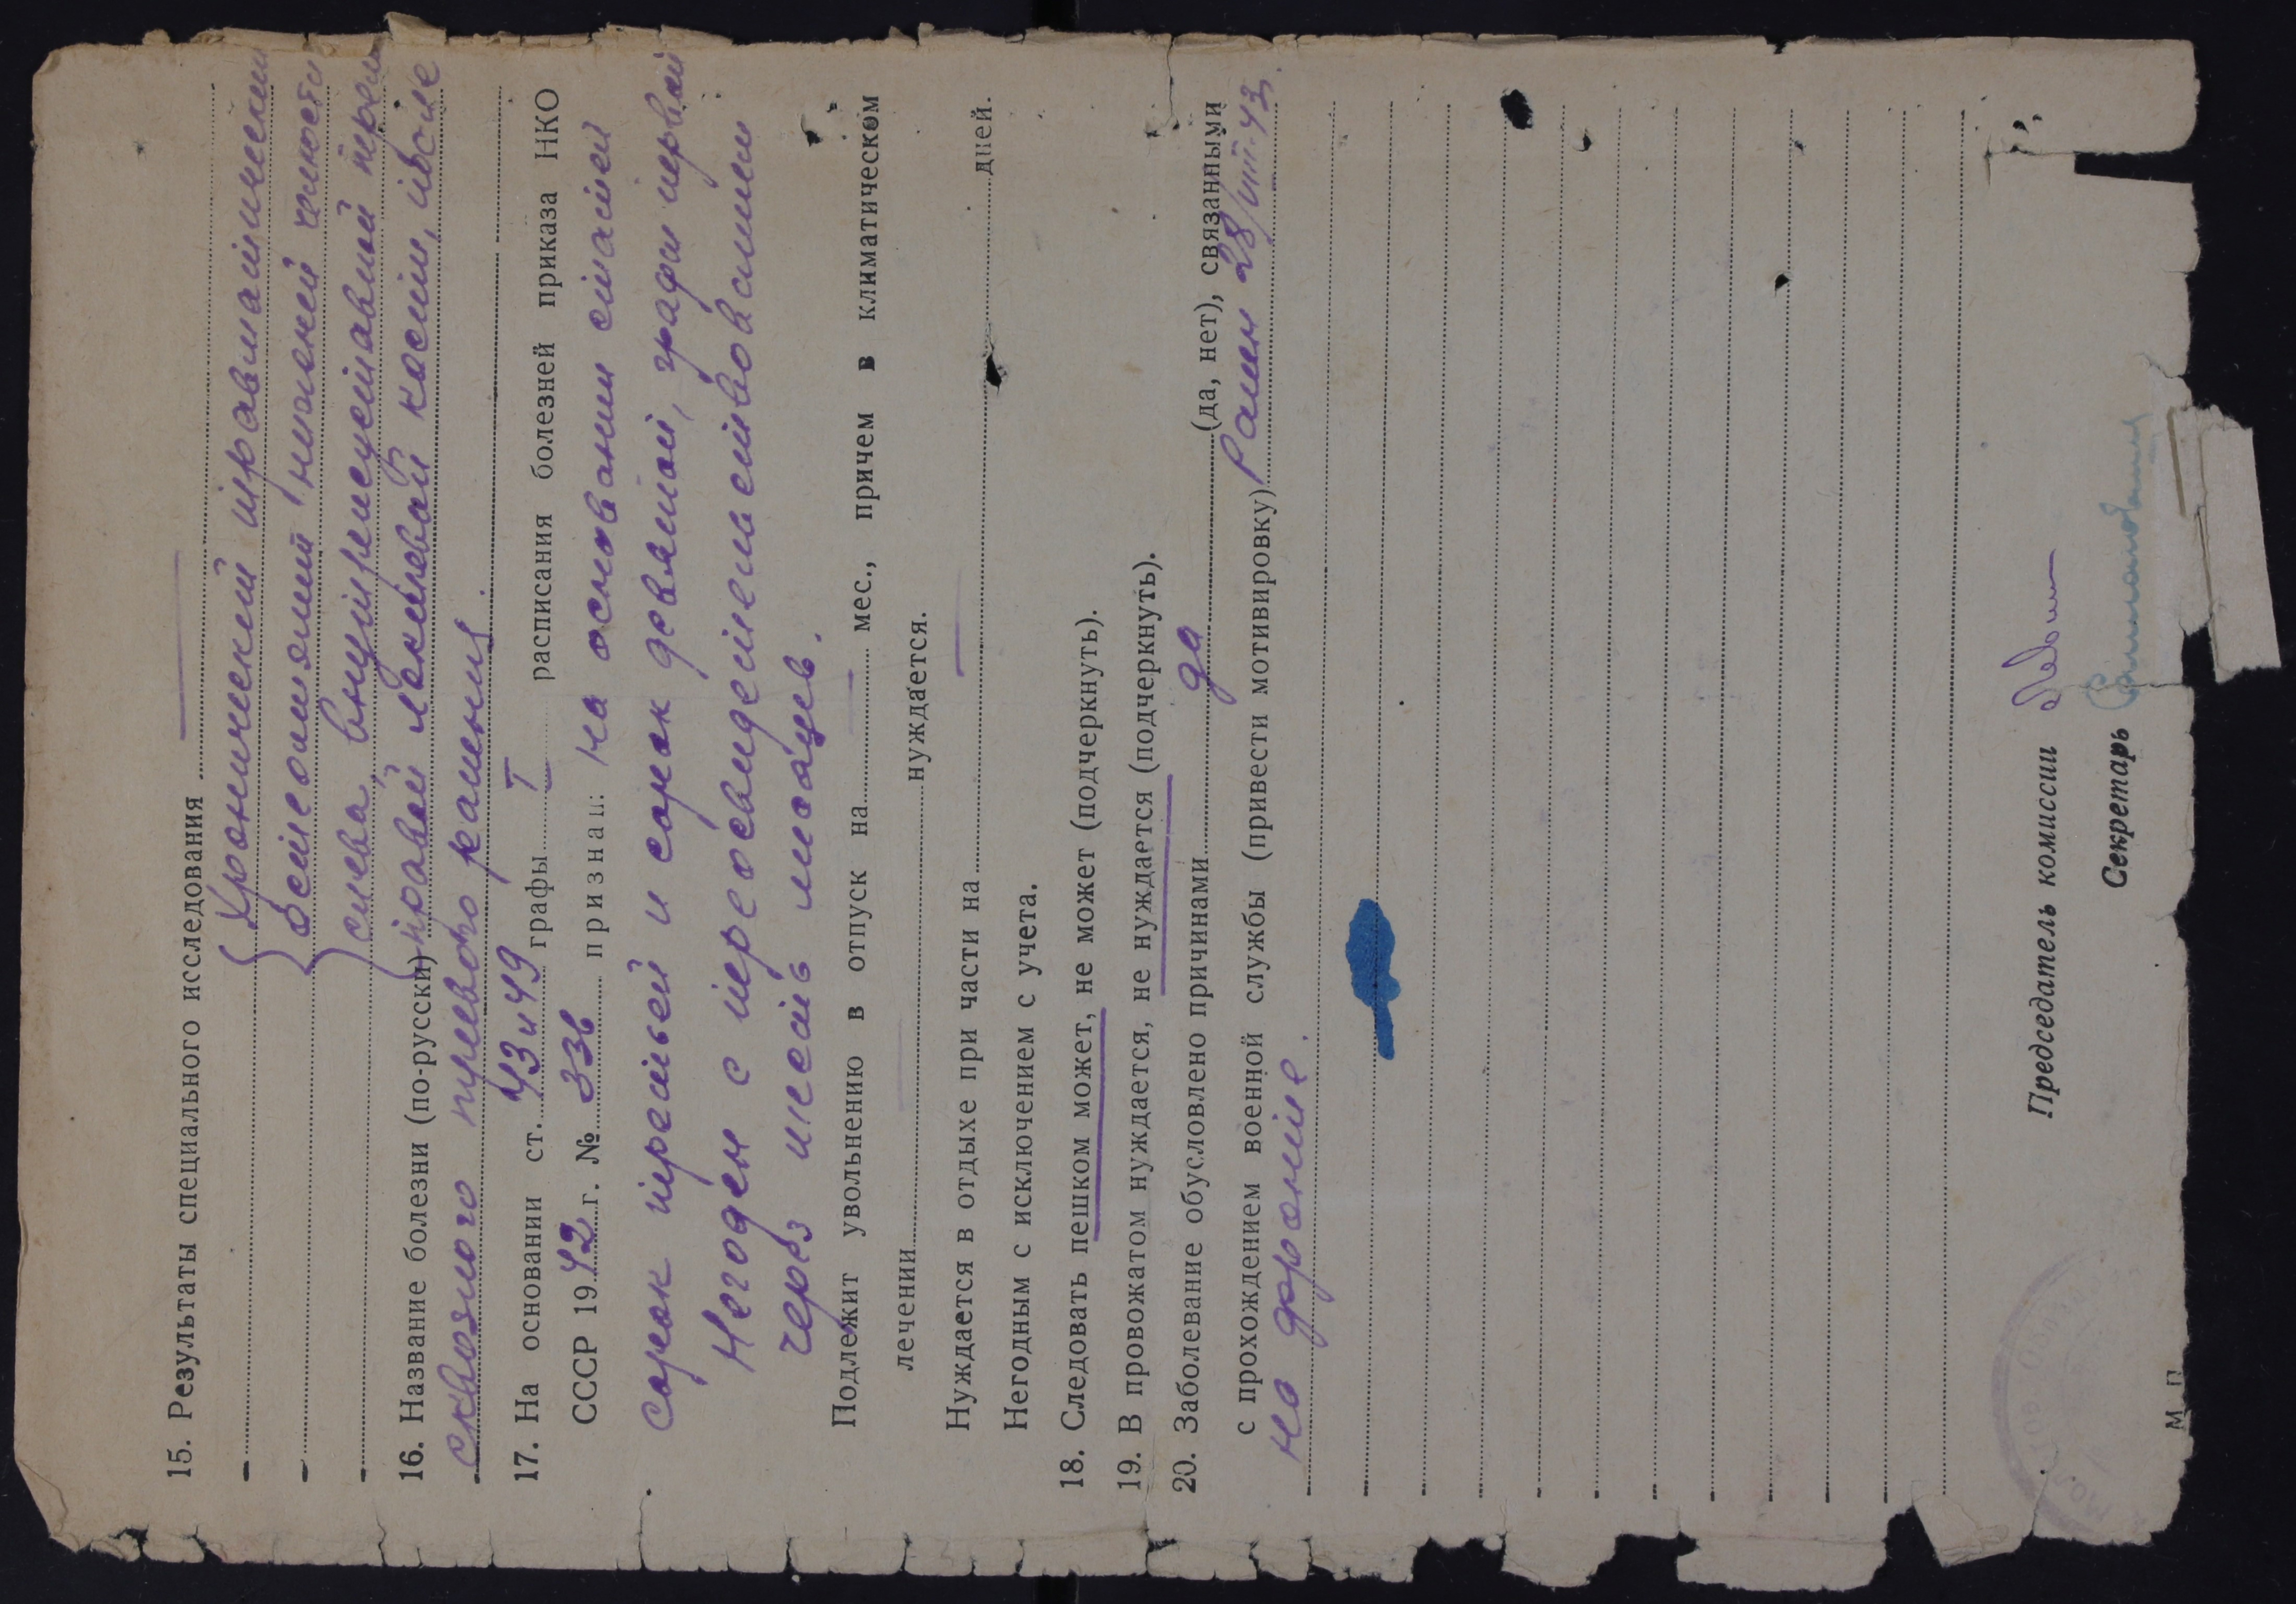 15. Результаты специального исследования
Хронический травматический
остеомиэлит нижней челюсти
слева, внутрисуставной перел
16. Название болезни (по-русски) правой локтевой кости, после
сквозного пулевого ранения.
17. На основании ст. 43 и 49 графы I расписания болезней приказа НКО
СССР 1942 г. № 336 признан: на основании статей
сорок третьей и сорок девятой, графы первой
Негоден с переосвидетельствованием
через шесть месяцев.
Подлежит увольнению в отпуск на мес., причем в климатическом
лечении нуждается.
Нуждается в отдыхе при части на дней.
Негодным с исключением с учета.
18. Следовать пешком может, не может (подчеркнуть).
19. В провожатом нуждается, не нуждается (подчеркнуть).
20. Заболевание обусловлено причинами да (да, нет), связанными
с прохождением военной службы (привести мотивировку) Ранен 28/VIII-43
на фронте.
Председатель комиссии
Секретарь
М П